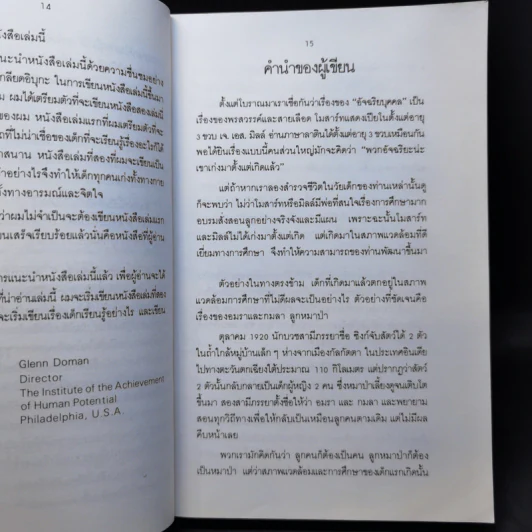 14
สือเล่มนี้
นะนำหนังสือเล่มนี้ด้วยความชื่นชมอย่าง
เกลียดอิบุกะ ในการเขียนหนังสือเล่มนี้ขึ้นมา
ผมได้เตรียมตัวที่จะเขียนหนังสือสองเล่มนี้
ของผม หนังสือเล่มแรกที่ผมเตรียมตัวที่จะ
ที่ไม่น่าเชื่อของเด็กที่จะเรียนรู้เรื่องอะไรก็ได้
าสนาน หนังสือเล่มที่สองที่ผมจะเขียนเป็น
ำอย่างไรจึงทำให้เด็กทุกคนเก่งทั้งทางกาย
ทั้งทางอารมณ์และจิตใจ
ว่าผมไม่จำเป็นจะต้องเขียนหนังสือเล่มแรก
ยนเสร็จเรียบร้อยแล้วนั่นคือหนังสือที่ผู้อ่าน
ารแนะนำหนังสือเล่มนี้แล้ว เพื่อผู้อ่านจะได้
ที่น่าอ่านเล่มนี้ ผมจะเริ่มเขียนหนังสือที่สอง
จะเริ่มเขียนเรื่องเด็กเรียนรู้อย่างไร และเขียน
Glenn Doman
Director
The Institute of the Achievement
of Human Potential
Philadelphia, U.S.A.
15
คำนำของผู้เขียน
ตั้งแต่โบราณมาเราเชื่อกันว่าเรื่องของ “อัจฉริยบุคคล” เป็น
เรื่องของพรสวรรค์และสายเลือด โมสาร์ทแสดงเปียโนตั้งแต่อายุ
3 ขวบ เจ. เอส. มิลล์ อ่านภาษาลาตินได้ตั้งแต่อายุ 3 ขวบเหมือนกัน
พอได้ยินเรื่องแบบนี้คนส่วนใหญ่มักจะคิดว่า “พวกอัจฉริยะน่ะ
เขาเก่งมาตั้งแต่เกิดแล้ว”
แต่ถ้าหากเราลองสำรวจชีวิตในวัยเด็กของท่านเหล่านั้นดู
ก็จะพบว่า ไม่ว่าโมสาร์ทหรือมิลล์มีพ่อที่สนใจเรื่องการศึกษามาก
อบรมสั่งสอนลูกอย่างจริงจังและมีแผน เพราะฉะนั้นโมสาร์ท
และมิลล์ไม่ได้เก่งมาตั้งแต่เกิด แต่เกิดมาในสภาพแวดล้อมที่ดี
เยี่ยมทางการศึกษา จึงทำให้ความสามารถของท่านพัฒนาขึ้นมา
ตัวอย่างในทางตรงข้าม เด็กที่เกิดมาแล้วตกอยู่ในสภาพ
แวดล้อมการศึกษาที่ไม่ดีผลจะเป็นอย่างไร ตัวอย่างที่ชัดเจนคือ
เรื่องของอมราและกมลา ลูกหมาป่า
ตุลาคม 1920 นักบวชสามีภรรยาชื่อ ซิงก์จับสัตว์ได้ 2 ตัว
ในถ้ำใกล้หมู่บ้านเล็ก ๆ ห่างจากเมืองกัลกัตตา ในประเทศอินเดีย
ไปทางตะวันตกเฉียงใต้ประมาณ 110 กิโลเมตร แต่ปรากฏว่าสัตว์
2 ตัวนั้นกลับกลายเป็นเด็กผู้หญิง 2 คน ซึ่งหมาป่าเลี้ยงดูจนเติบโต
ขึ้นมา สองสามีภรรยาตั้งชื่อให้ว่า อมรา และ กมลา และพยายาม
สอนทุกวิถีทางเพื่อให้กลับเป็นเหมือนลูกคนตามเดิม แต่ไม่มีผล
คืบหน้าเลย
พวกเรามักคิดกันว่า ลูกคนก็ต้องเป็นคน ลูกหมาป่าก็ต้อง
เป็นหมาป่า แต่ว่าสภาพแวดล้อมและการศึกษาของเด็กแรกเกิดนั้น